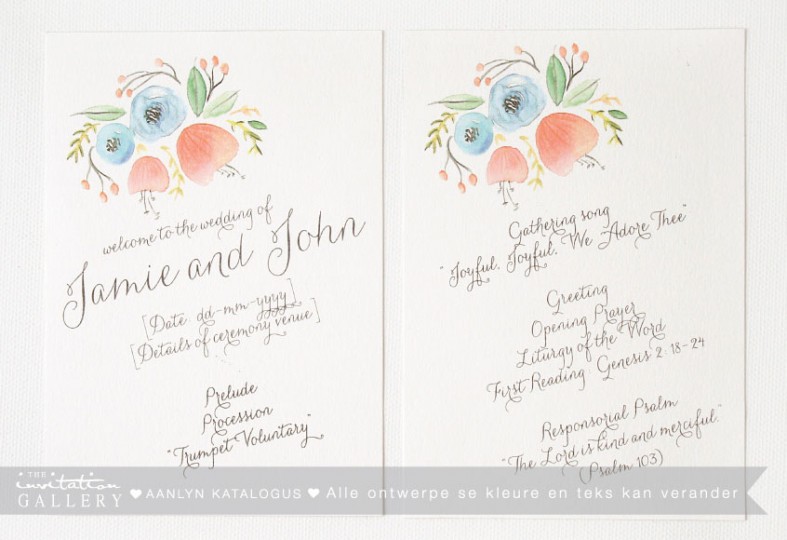 welcome to the wedding of
Jamie and John
[Date: dd-mm-yyyy]
[Details of ceremony venue]
Prelude
Procession
"Trumpet Voluntary"
Gathering song
"Joyful, Joyful, We Adore Thee"
Greeting
Opening Prayer
Liturgy of the Word
First Reading Genesis 2: 18-24
Responsorial Psalm
"The Lord is kind and merciful."
(Psalm 103)
THE
invitation
GALLERY
♥ AANLYN KATALOGUS ♥ Alle ontwerpe se kleure en teks kan verander